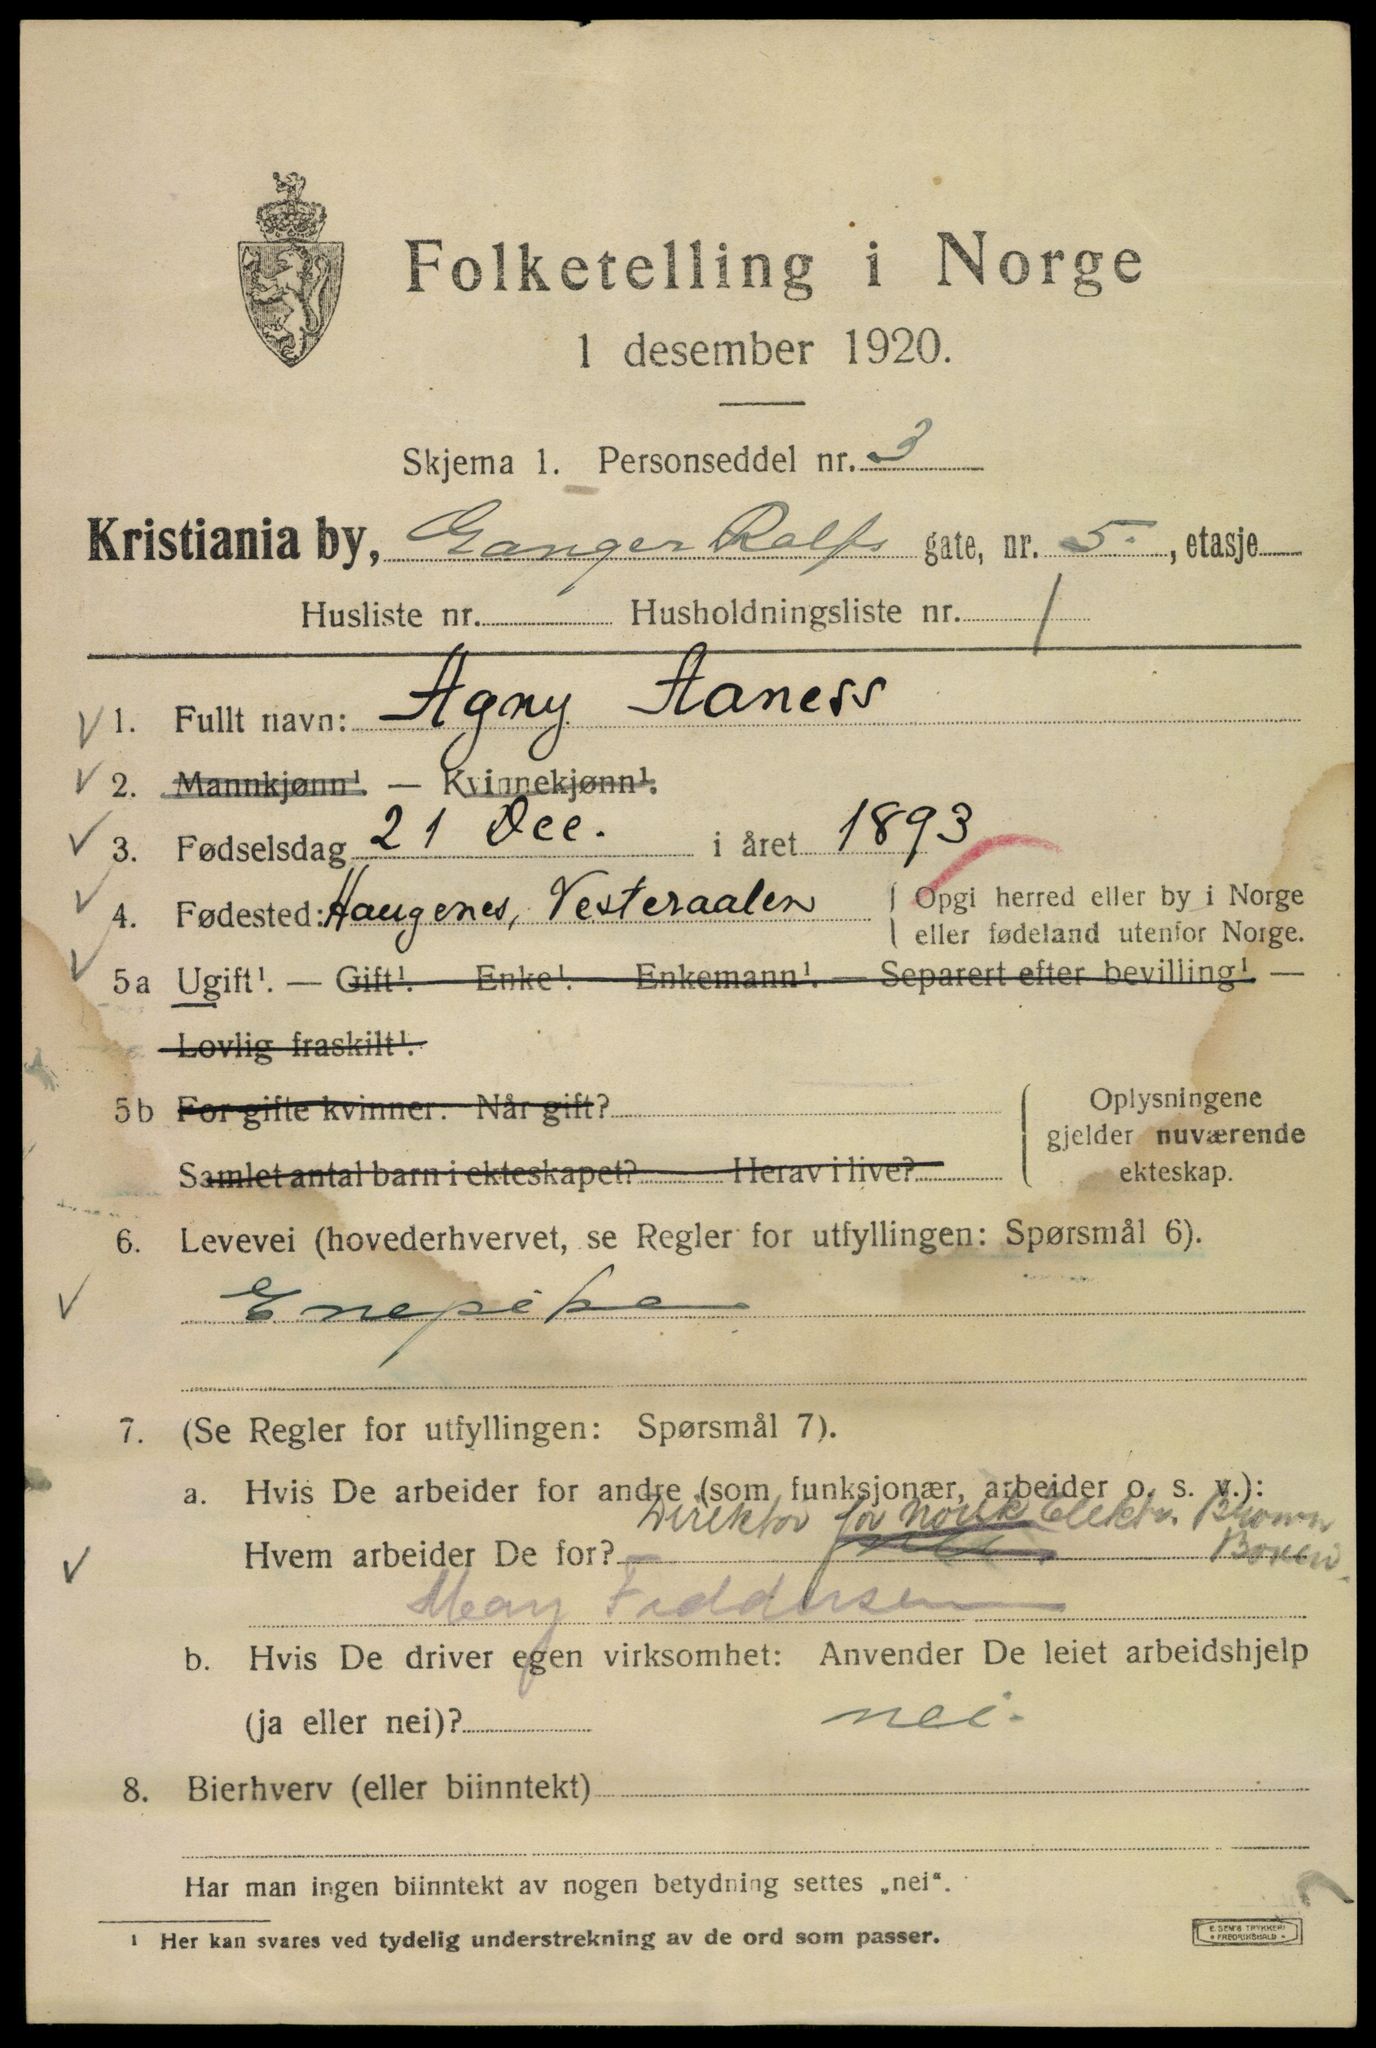 Folketelling i Norge
1 desember 1920.
Skjema 1. Personseddel nr. 3
Kristiania by, Ganger Rolfs gate, nr. 5. , etasje
Husliste nr. Husholdningsliste nr. 1
1. Fullt navn: Agny Aaness
2. Mannkjønn¹. — Kvinnekjønn¹.
3. Fødselsdag 21 Dec. i året 1893
4. Fødested: Haugenes, Vesteraalen
Opgi herred eller by i Norge
eller fødeland utenfor Norge.
5a Ugift¹. — Gift¹. — Enke¹. — Enkemann¹. — Separert efter bevilling¹ —
Lovlig fraskilt¹.
5b For gifte kvinner. Når gift?
Samlet antal barn i ekteskapet? Herav i live?
Oplysningene
gjelder nuværende
ekteskap.
6. Levevei (hovederhvervet, se Regler for utfyllingen: Spørsmål 6).
Enepike
7. (Se Regler for utfyllingen: Spørsmål 7).
a. Hvis De arbeider for andre (som funksjonær, arbeider o. s. v.):
Direktør for Norsk Elektr. Brown
Hvem arbeider De for? nei. Boveri.
May Feddersen
b. Hvis De driver egen virksomhet: Anvender De leiet arbeidshjelp
(ja eller nei)? nei.
8. Bierhverv (eller biinntekt)
Har man ingen biinntekt av nogen betydning settes „nei“.
¹ Her kan svares ved tydelig understrekning av de ord som passer.
E. SEM'S TRYKKERI
FREDRIKSHALD